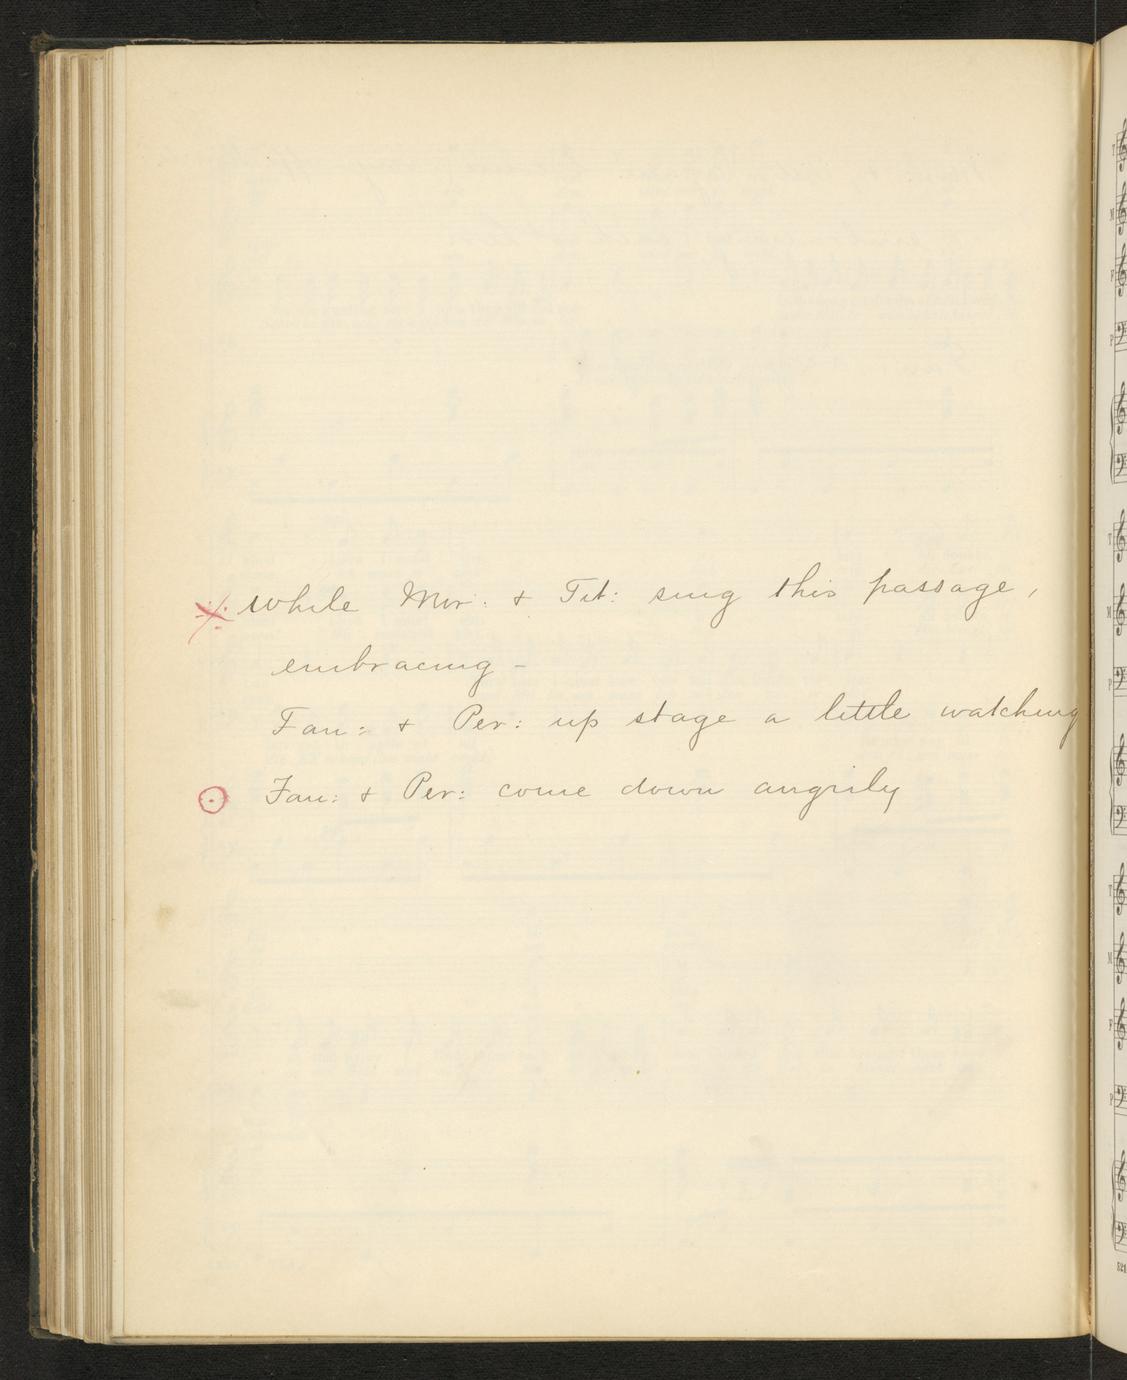 ※ While Mir: & Tit: sing this passage,
embracing -
Fan: & Per: up stage a little watching
⊙ Fan: & Per: come down angrily
T
M
F
P
T
M
P
T
M
F
P